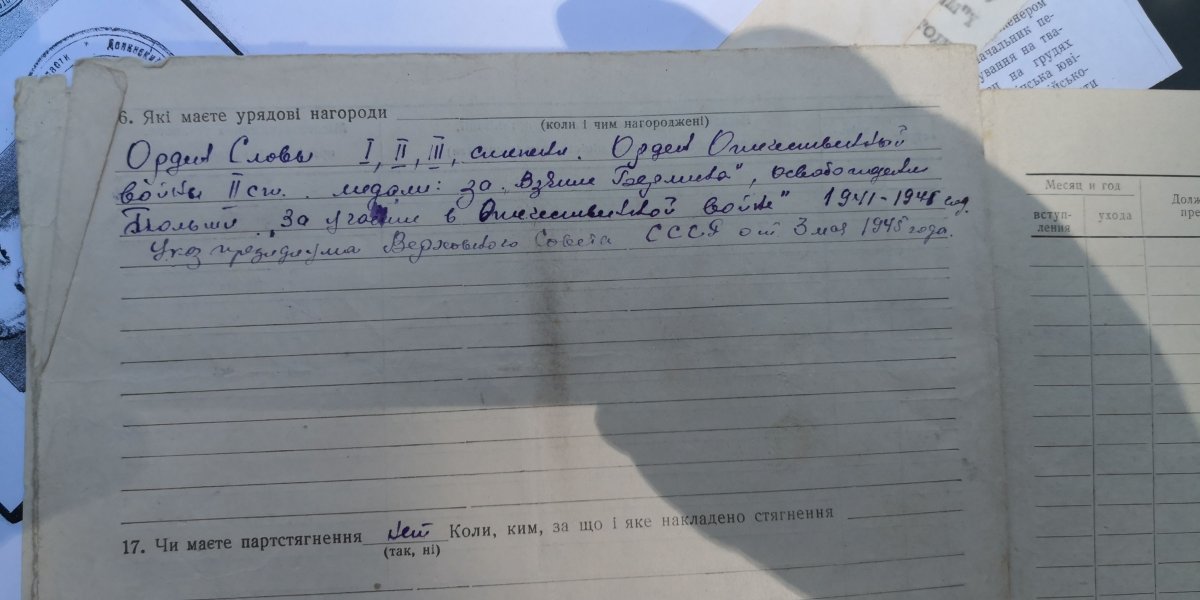 Должнск
ненером
начальник пе-
ування на тва-
на грудях
нська юві-
йсько-
6. Які маєте урядові нагороди
(коли і чим нагороджені)
Орден Славы I, II, III, степени. Орден Отечественной
войны II ст. медали: за "Взятие Берлина", освобождение
Польши "За участие в Отечественной войне" 1941-1945 год.
Указ президиума Верховного Совета СССР от 3 мая 1945 года.
17. Чи маєте партстягнення нет Коли, ким, за що і яке накладено стягнення
(так, ні)
Месяц и год
вступ-
ления
ухода
Долж
пре